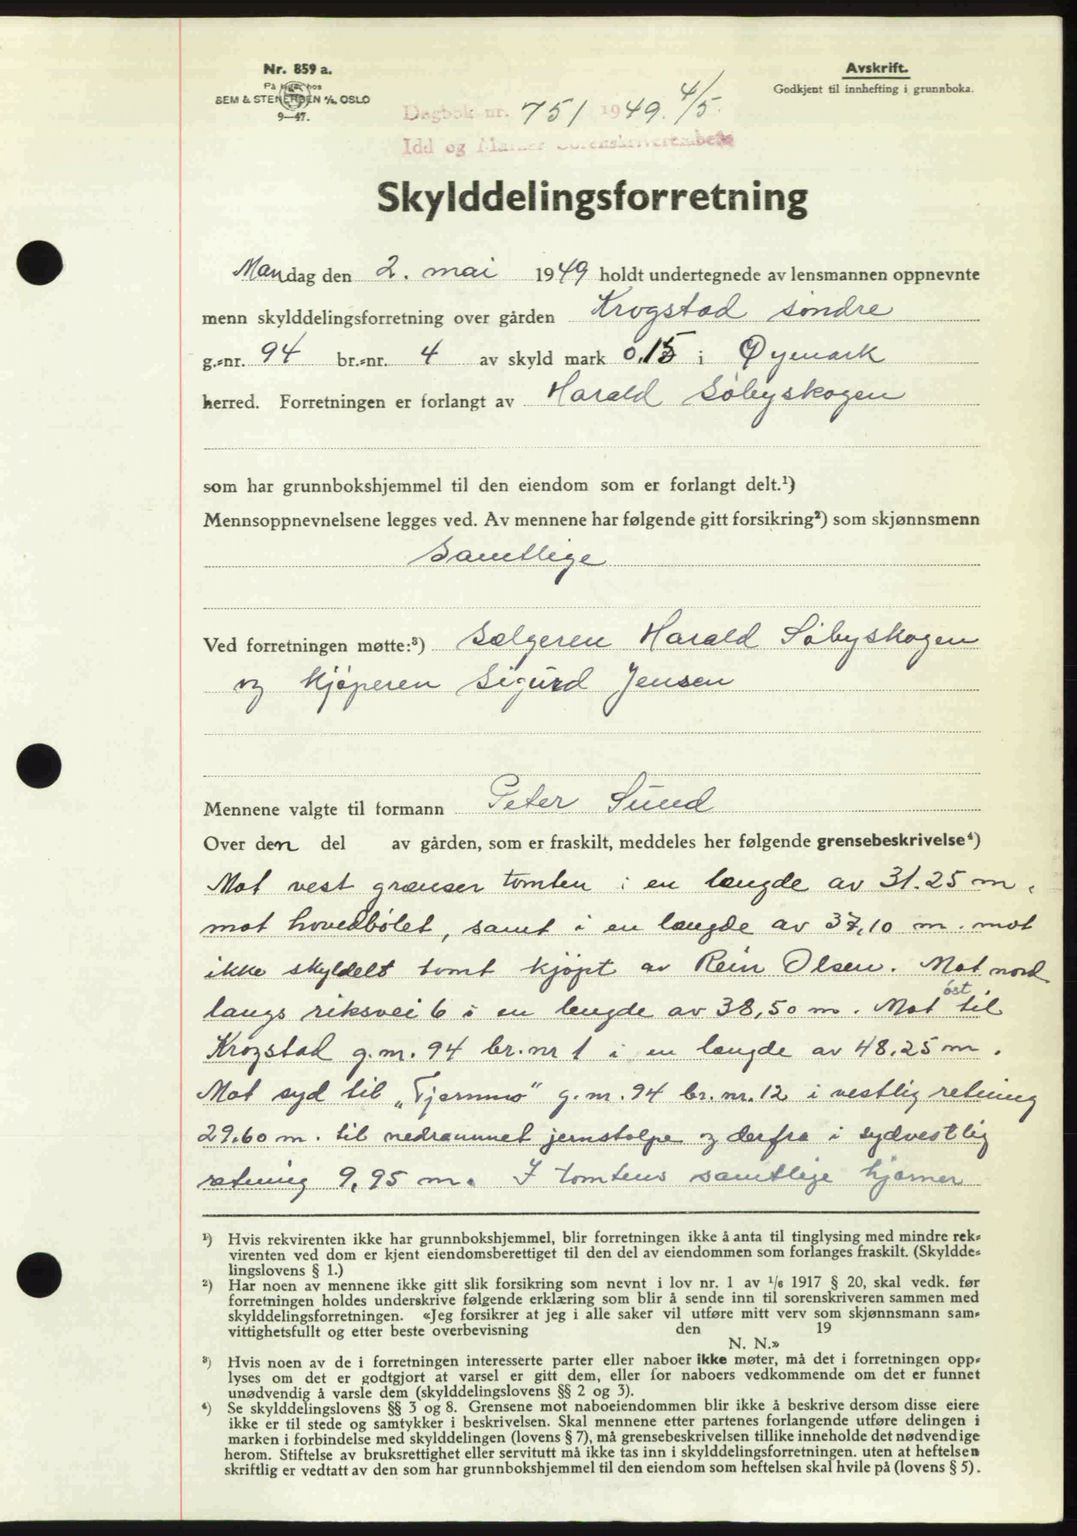 Nr. 859 a.
På lager hos
SEM & STENERSEN A/S, OSLO
9—47.
Avskrift.
Godkjent til innhefting i grunnboka.
Dagbok nr. 751 1949. 4/5.
Idd og Marker Sorenskriverembete
Skylddelingsforretning
Mandag den 2. mai 1949 holdt undertegnede av lensmannen oppnevnte
menn skylddelingsforretning over gården Krogstad søndre
g.-nr. 94 br.-nr. 4 av skyld mark 0,15 i Øymark
herred. Forretningen er forlangt av Harald Søbyskogen
som har grunnbokshjemmel til den eiendom som er forlangt delt.¹)
Mennsoppnevnelsene legges ved. Av mennene har følgende gitt forsikring²) som skjønnsmenn
Samtlige
Ved forretningen møtte:³) Sælgeren Harald Søbyskogen
og kjøperen Sigurd Jensen
Mennene valgte til formann Peter Sund
Over den del av gården, som er fraskilt, meddeles her følgende grensebeskrivelse⁴)
Mot vest grænser tomten i en længde av 31.25 m.
mot hovedbølet, samt i en længde av 37,10 m. mot
ikke skyldelt tomt kjøpt av Rein Olsen. Mot nord
langs riksvei 6 i en lengde av 38,50 m. Mot øst til
Krogstad g.nr. 94 br.nr 1 i en længde av 48,25 m.
Mot syd til „Fjernmo" g.nr. 94 br.nr. 12 i vestlig retning
29.60 m. til nedrammet jernstolpe og derfra i sydvestlig
retning 9,95 m. I tomtens samtlige hjørner
¹) Hvis rekvirenten ikke har grunnbokshjemmel, blir forretningen ikke å anta til tinglysing med mindre rek-
virenten ved dom er kjent eiendomsberettiget til den del av eiendommen som forlanges fraskilt. (Skyldde-
lingslovens § 1.)
²) Har noen av mennene ikke gitt slik forsikring som nevnt i lov nr. 1 av 1/6 1917 § 20, skal vedk. før
forretningen holdes underskrive følgende erklæring som blir å sende inn til sorenskriveren sammen med
skylddelingsforretningen. «Jeg forsikrer at jeg i alle saker vil utføre mitt verv som skjønnsmann sam-
vittighetsfullt og etter beste overbevisning den 19
N. N.»
³) Hvis noen av de i forretningen interesserte parter eller naboer ikke møter, må det i forretningen opp-
lyses om det er godtgjort at varsel er gitt dem, eller for naboers vedkommende om det er funnet
unødvendig å varsle dem (skylddelingslovens §§ 2 og 3).
⁴) Se skylddelingslovens §§ 3 og 8. Grensene mot naboeiendommen blir ikke å beskrive dersom disse eiere
ikke er til stede og samtykker i beskrivelsen. Skal mennene etter partenes forlangende utføre delingen i
marken i forbindelse med skylddelingen (lovens § 7), må grensebeskrivelsen tillike inneholde det nødvendige
herom. Stiftelse av bruksrettighet eller servitutt må ikke tas inn i skylddelingsforretningen. uten at heftelsen
skriftlig er vedtatt av den som har grunnbokshjemmel til den eiendom som heftelsen skal hvile på (lovens § 5).